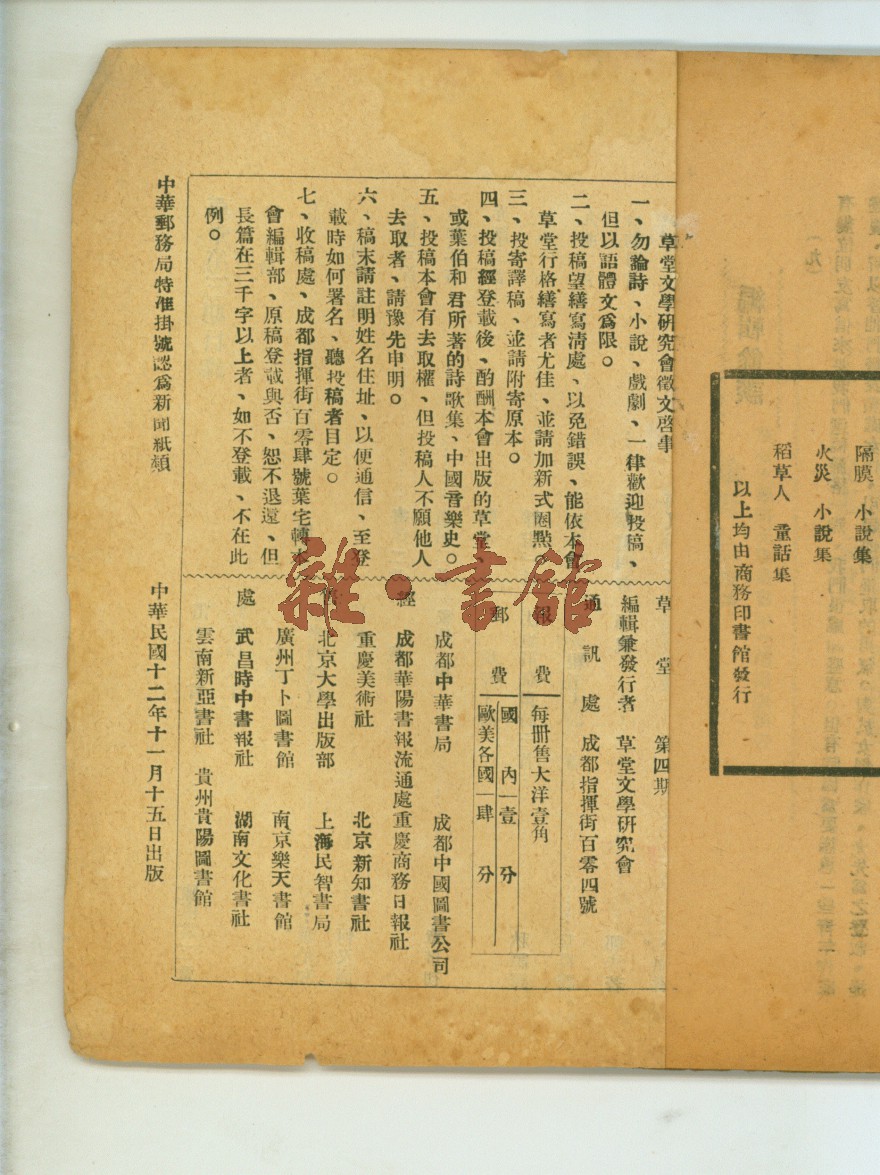 隔膜 小說集
火災 小說集
稻草人 童話集
以上均由商務印書館發行
草堂文學研究會徵文啓事
一、勿論詩、小說、戲劇、一律歡迎投稿、
但以語體文爲限。
二、投稿望繕寫淸處、以免錯誤、能依本會
草堂行格繕寫者尤佳、並請加新式圈點。
三、投寄譯稿、並請附寄原本。
四、投稿經登載後、酌酬本會出版的草堂、
或葉伯和君所著的詩歌集、中國音樂史。
五、投稿本會有去取權、但投稿人不願他人
去取者、請豫先申明。
六、稿末請註明姓名住址、以便通信、至登
載時如何署名、聽投稿者目定。
七、收稿處、成都指揮街百零肆號葉宅轉本
會編輯部、原稿登載與否、恕不退還、但
長篇在三千字以上者、如不登載、不在此
例。
草堂 第四期
編輯兼發行者 草堂文學研究會
通訊處 成都指揮街百零四號
報費 每冊售大洋壹角
郵費 國內 壹分
歐美各國 肆分
成都中華書局 成都中國圖書公司
經 成都華陽書報流通處 重慶商務日報社
重慶美術社 北京新知書社
北京大學出版部 上海民智書局
廣州丁卜圖書館 南京樂天書館
處 武昌時中書報社 湖南文化書社
雲南新亞書社 貴州貴陽圖書館
中華郵務局特准掛號認爲新聞紙類
中華民國十二年十一月十五日出版
雜·書館